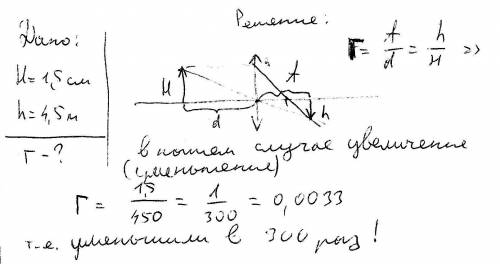 Дано:
H = 1,5 см
h = 4,5 м
Г - ?
Решение:
Г = A/d = h/H =>
H
A
d
h
в нашем случае увеличение
(уменьшение)
Г = 1,5/450 = 1/300 = 0,0033
т.е. уменьшили в 300 раз!